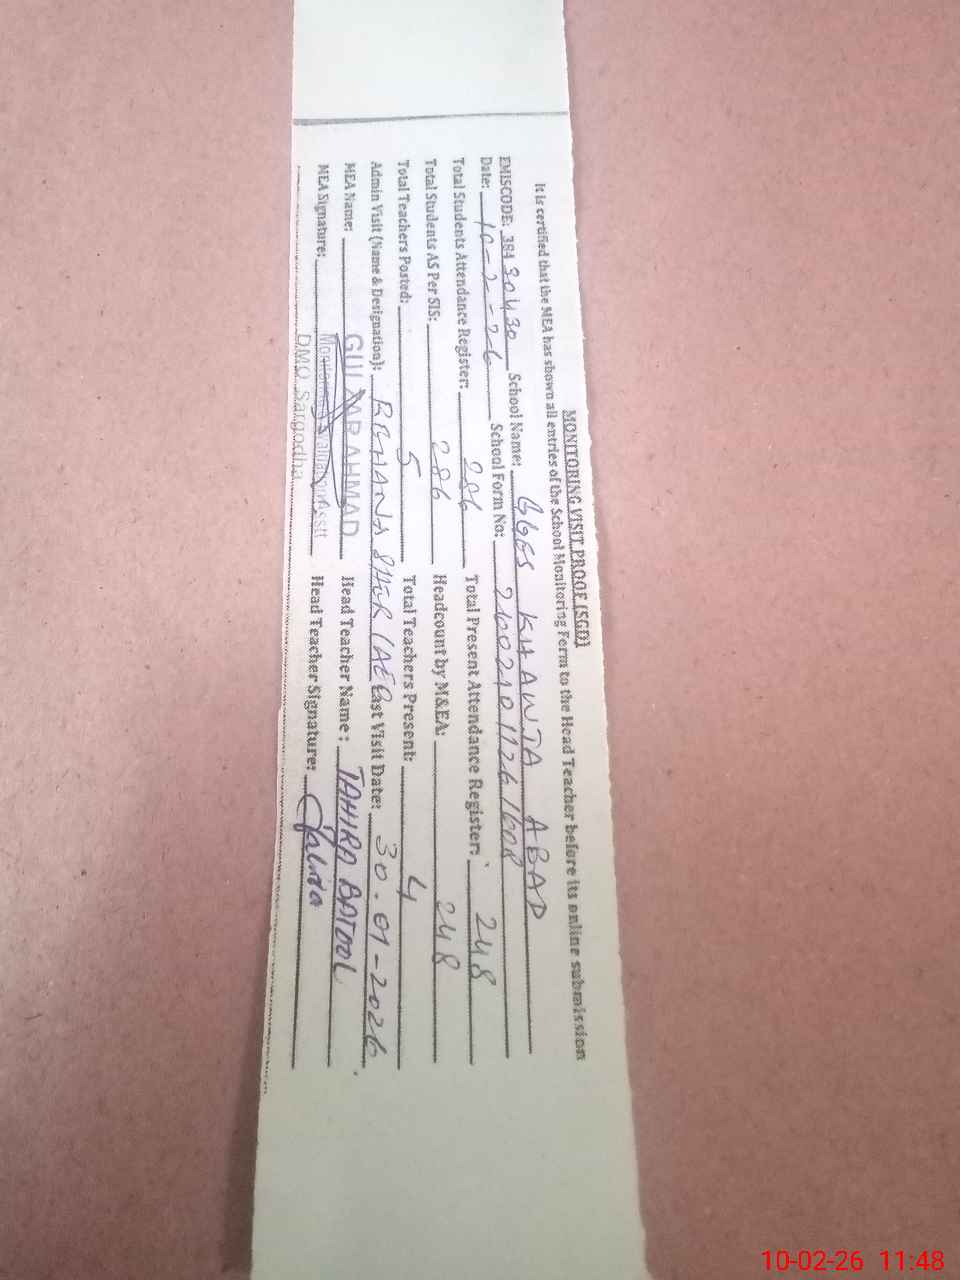 MONITORING VISIT PROOF (SGD)
It is certified that the MEA has shown all entries of the School Monitoring Form to the Head Teacher before its online submission
EMISCODE: 38430430 School Name: GGES KHAWJA ABAD
Date: 10-2-26 School Form No:
Total Students Attendance Register: 286 Total Present Attendance Register: 248
Total Students AS Per SIS: 286 Headcount by M&EA: 248
Total Teachers Posted: 5 Total Teachers Present: 4
Admin Visit (Name & Designation): REHANA SHER (AEO Last Visit Date: 30-01-2026
MEA Name: GULZAR AHMAD Head Teacher Name: TAHIRA BATOOL
MEA Signature: Head Teacher Signature: Tahira
DMO Sargodha
10-02-26 11:48